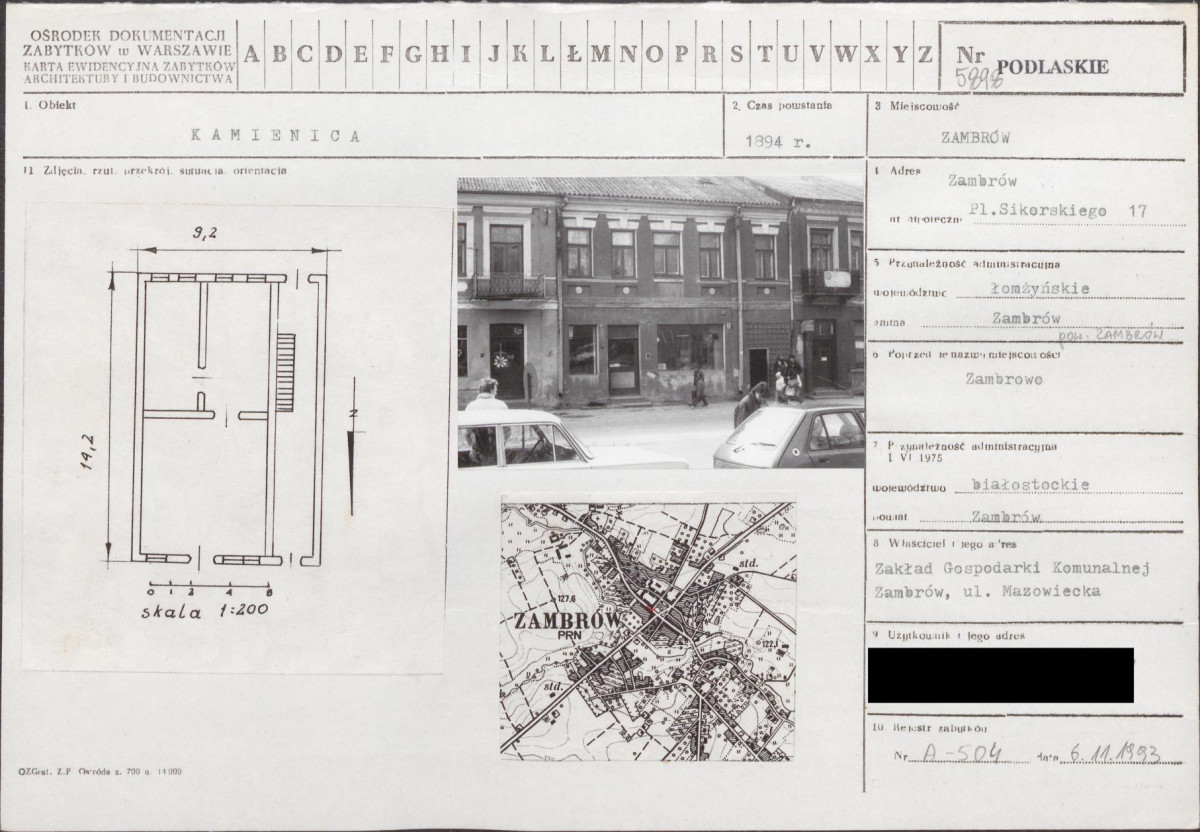 OŚRODEK DOKUMENTACJI
ZABYTKÓW w WARSZAWIE
KARTA EWIDENCYJNA ZABYTKÓW
ARCHITEKTURY I BUDOWNICTWA
A B C D E F G H I J K L Ł M N O P R S T U V W X Y Z
Nr
5898
PODLASKIE
1. Obiekt
KAMIENICA
2. Czas powstania
1894 r.
3 Miejscowość
ZAMBRÓW
11 Zdjęcia, rzut, przekrój, sytuacja, orientacja
4 Adres
Zambrów
Pl.Sikorskiego 17
5 Przynależność administracyjna
województwo łomżyńskie
gmina Zambrów
pow. ZAMBRÓW
6 Poprzednie nazwy miejscowości
Zambrowo
7. Przynależność administracyjna
1 VI 1975
województwo białostockie
powiat Zambrów
8 Właściciel i jego adres
Zakład Gospodarki Komunalnej
Zambrów, ul. Mazowiecka
9 Użytkownik i jego adres
10 Rejestr zabytków
Nr A-504 data 6.11.1993
9,2
14,2
N
0 1 2 6
skala 1:200
std.
127,6
ZAMBRÓW
PRN
122,1
std.
OZGraf. Z.P Ostróda z. 700 n. 14 000